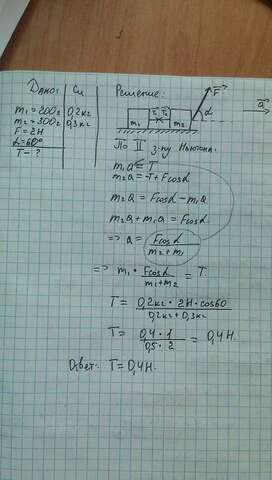 Дано: Си Решение:
m₁=200г 0,2кг
m₂=300г 0,3кг
F=2Н
α=60°
T-?
m₁ T T m₂ F α a
По II з-ну Ньютона.
m₁a = T
m₂a = -T + Fcosα
m₂a = Fcosα - m₁a
m₂a + m₁a = Fcosα
=> a = Fcosα / m₂+m₁
=> m₁ · Fcosα / m₁+m₂ = T
T = 0,2кг · 2Н · cos60 / 0,2кг + 0,3кг
T = 0,4 · 1 / 0,5 · 2 = 0,4Н
Ответ: T=0,4Н.